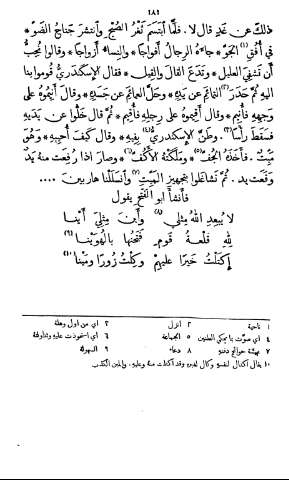 ١٨٢
ذلك عن يَدٍ قال لا * فلمَّا ابتسم ثَغْرُ الصُّبْحِ وانتشر جَناحُ الضَّوِّ *
في أُفْقِ (١) الجوِّ * جاءَهُ الرجالُ أَفواجًا * والنِساءُ أزواجًا * وقالوا نُحِبُّ
أَن تَشْفِيَ العليلَ * وتَدَعَ القالَ والقِيلَ * فقال الإسكندريُّ قوموا بنا
اليهِ ثُمَّ حَدَرَ (٢) التمائِمَ عن يَدِهِ * وحَلَّ العمائِمَ عن جَسَدِهِ * وقال أَنِيمُوهُ على
وَجهِهِ فأُنِيمَ * وقال أَقيموهُ على رِجليهِ فأُقيمَ * ثُمَّ قال خَلُّوا عن يَدَيهِ
فسَقَطَ رأسًا (٣) * وطَنَّ الإسكندريُّ (٤) بِفِيهِ * وقال كيفَ أُحيِيهِ * وهُوَ
مَيِّتٌ * فأَخَذَهُ الخُفُّ (٥) * ومَلَكَتْهُ الأَكُفُّ (٦) * وصار اذا رُفِعَت منهُ يدٌ
وَقَعَت يد * ثُمَّ تَشاغَلوا بتجهيزِ المَيِّتِ (٧) وانسَلَلْنا هاربين ....
فأَنشأَ ابو الفَتحِ يقول
لا يُبعِدُ اللهُ مِثلي (٨) وأَينَ مِثليَ أَينا
للهِ قَلعةُ قومٍ فَتَحتُها بالهُوَينا (٩)
إِكتَلتُ خَيرًا عليهِم وكِلتُ زُورًا ومَينا (١٠)
١ ناحية ٢ انزل ٣ اي من اول وهلة
٤ اي صوَّت بما يحكي الطنين ٥ الجماعة ٦ اي استحوذت عليه وتناولتهُ
٧ تهيئة حوائج دفنهِ ٨ دعاء ٩ السهولة
١٠ يقال اكتال لنفسهِ وكال لغيرهِ وقد اكتلت منهُ وعليهِ. والمين الكذب